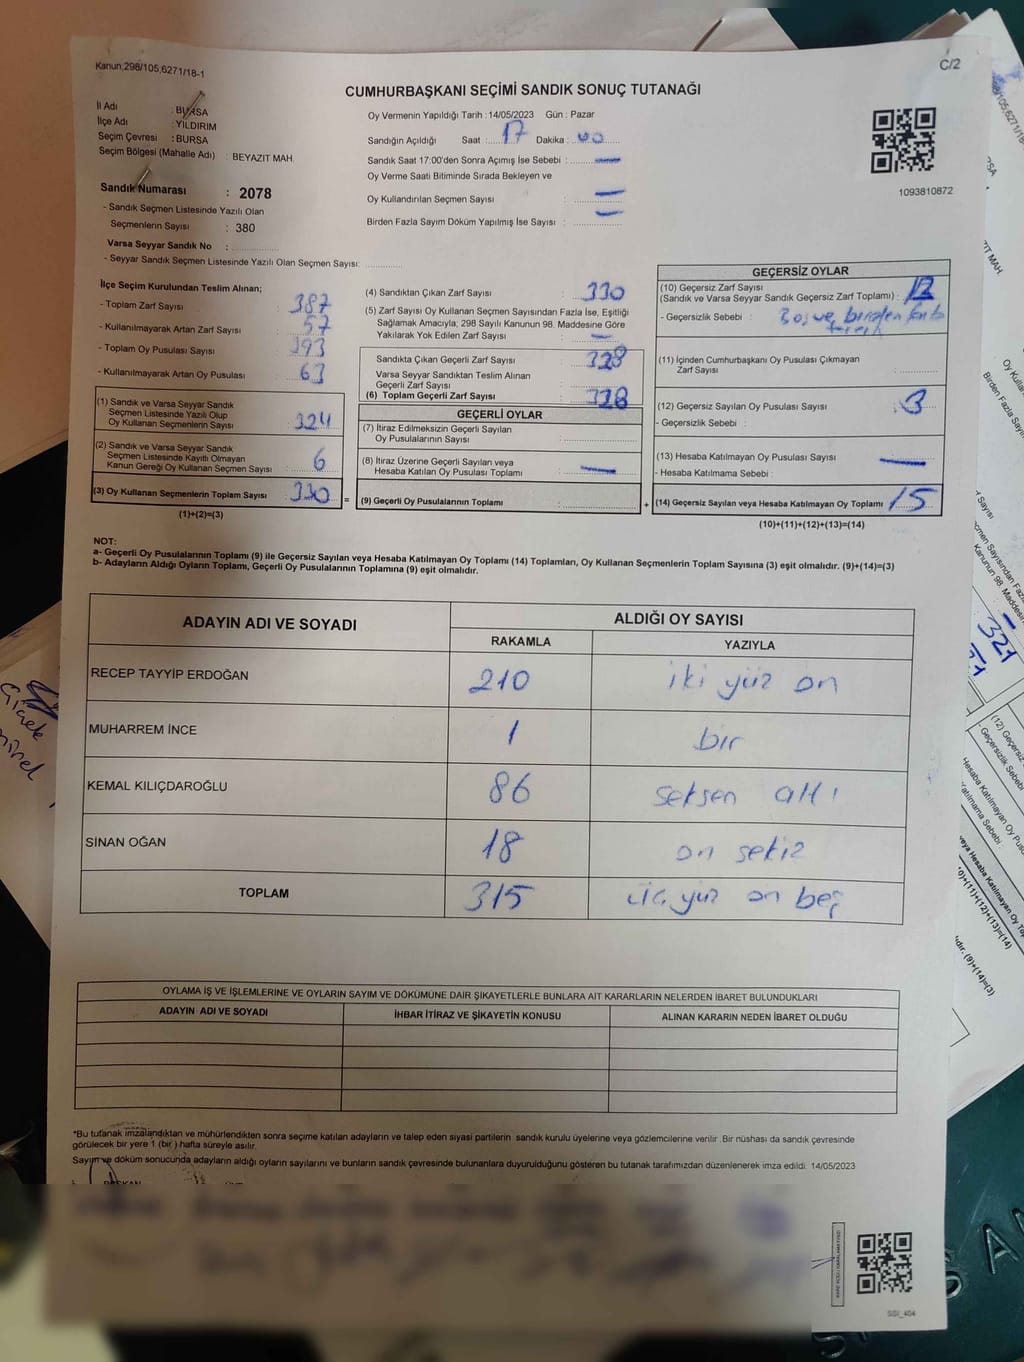 Kanun;298/105,6271/18-1
C/2
CUMHURBAŞKANI SEÇİMİ SANDIK SONUÇ TUTANAĞI
İl Adı : BURSA
İlçe Adı : YILDIRIM
Seçim Çevresi : BURSA
Seçim Bölgesi (Mahalle Adı) : BEYAZIT MAH.
Sandık Numarası : 2078
- Sandık Seçmen Listesinde Yazılı Olan
Seçmenlerin Sayısı : 380
Varsa Seyyar Sandık No :
- Seyyar Sandık Seçmen Listesinde Yazılı Olan Seçmen Sayısı:
Oy Vermenin Yapıldığı Tarih : 14/05/2023 Gün : Pazar
Sandığın Açıldığı Saat : 17 Dakika : 00
Sandık Saat 17:00'den Sonra Açımış İse Sebebi : —
Oy Verme Saati Bitiminde Sırada Bekleyen ve
Oy Kullandırılan Seçmen Sayısı : —
Birden Fazla Sayım Döküm Yapılmış İse Sayısı : —
1093810872
İlçe Seçim Kurulundan Teslim Alınan;
- Toplam Zarf Sayısı : 387
- Kullanılmayarak Artan Zarf Sayısı : 57
- Toplam Oy Pusulası Sayısı : 393
- Kullanılmayarak Artan Oy Pusulası : 63
(1) Sandık ve Varsa Seyyar Sandık
Seçmen Listesinde Yazılı Olup
Oy Kullanan Seçmenlerin Sayısı : 324
(2) Sandık ve Varsa Seyyar Sandık
Seçmen Listesinde Kayıtlı Olmayan
Kanun Gereği Oy Kullanan Seçmen Sayısı : 6
(3) Oy Kullanan Seçmenlerin Toplam Sayısı : 330
(1)+(2)=(3)
=
(4) Sandıktan Çıkan Zarf Sayısı : 330
(5) Zarf Sayısı Oy Kullanan Seçmen Sayısından Fazla İse, Eşitliği
Sağlamak Amacıyla; 298 Sayılı Kanunun 98. Maddesine Göre
Yakılarak Yok Edilen Zarf Sayısı : —
Sandıkta Çıkan Geçerli Zarf Sayısı : 328
Varsa Seyyar Sandıktan Teslim Alınan
Geçerli Zarf Sayısı :
(6) Toplam Geçerli Zarf Sayısı : 328
GEÇERLİ OYLAR
(7) İtiraz Edilmeksizin Geçerli Sayılan
Oy Pusulalarının Sayısı :
(8) İtiraz Üzerine Geçerli Sayılan veya
Hesaba Katılan Oy Pusulası Toplamı : —
(9) Geçerli Oy Pusulalarının Toplamı :
+
GEÇERSİZ OYLAR
(10) Geçersiz Zarf Sayısı
(Sandık ve Varsa Seyyar Sandık Geçersiz Zarf Toplamı) : 12
- Geçersizlik Sebebi : Boş ve birden fazla
tercih
(11) İçinden Cumhurbaşkanı Oy Pusulası Çıkmayan
Zarf Sayısı :
(12) Geçersiz Sayılan Oy Pusulası Sayısı : 3
- Geçersizlik Sebebi :
(13) Hesaba Katılmayan Oy Pusulası Sayısı : —
- Hesaba Katılmama Sebebi :
(14) Geçersiz Sayılan veya Hesaba Katılmayan Oy Toplamı : 15
(10)+(11)+(12)+(13)=(14)
NOT:
a- Geçerli Oy Pusulalarının Toplamı (9) ile Geçersiz Sayılan veya Hesaba Katılmayan Oy Toplamı (14) Toplamları, Oy Kullanan Seçmenlerin Toplam Sayısına (3) eşit olmalıdır. (9)+(14)=(3)
b- Adayların Aldığı Oyların Toplamı, Geçerli Oy Pusulalarının Toplamına (9) eşit olmalıdır.
ADAYIN ADI VE SOYADI ALDIĞI OY SAYISI
RAKAMLA YAZIYLA
RECEP TAYYİP ERDOĞAN 210 iki yüz on
MUHARREM İNCE 1 bir
KEMAL KILIÇDAROĞLU 86 seksen altı
SİNAN OĞAN 18 on sekiz
TOPLAM 315 üç yüz on beş
OYLAMA İŞ VE İŞLEMLERİNE VE OYLARIN SAYIM VE DÖKÜMÜNE DAİR ŞİKAYETLERLE BUNLARA AİT KARARLARIN NELERDEN İBARET BULUNDUKLARI
ADAYIN ADI VE SOYADI İHBAR İTİRAZ VE ŞİKAYETİN KONUSU ALINAN KARARIN NEDEN İBARET OLDUĞU
*Bu tutanak imzalandıktan ve mühürlendikten sonra seçime katılan adayların ve talep eden siyasi partilerin sandık kurulu üyelerine veya gözlemcilerine verilir. Bir nüshası da sandık çevresinde
görülecek bir yere 1 (bir ) hafta süreyle asılır.
Sayım ve döküm sonucunda adayların aldığı oyların sayılarını ve bunların sandık çevresinde bulunanlara duyurulduğunu gösteren bu tutanak tarafımızdan düzenlenerek imza edildi. 14/05/2023